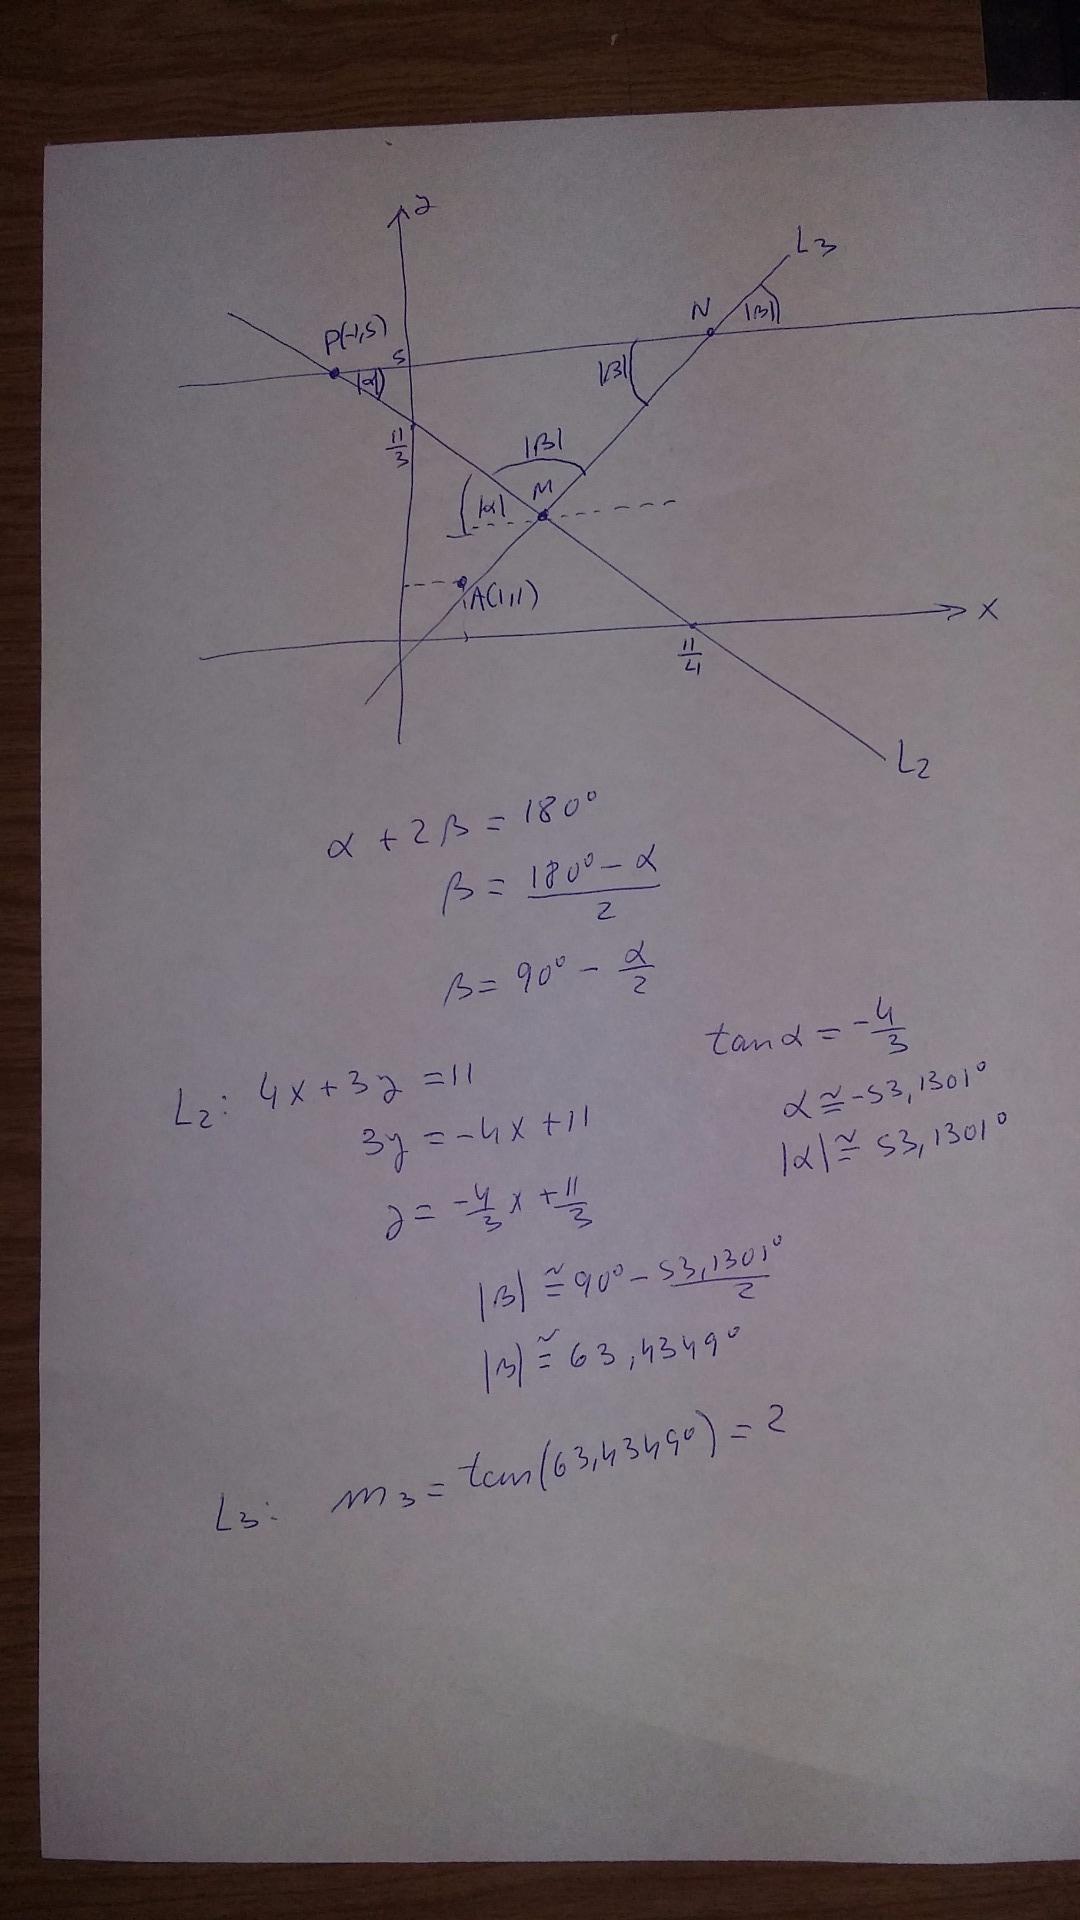 y
L3
N
|β|
P(-1,5)
5
|α|
|β|
11/3
|β|
M
|α|
A(1,1)
x
11/4
L2
α + 2β = 180°
β = (180° - α)/2
β = 90° - α/2
tan α = -4/3
L2: 4x + 3y = 11
α ≅ -53,1301°
3y = -4x + 11
|α| ≅ 53,1301°
y = -4/3 x + 11/3
|β| ≅ 90° - 53,1301°/2
|β| ≅ 63,4349°
L3: m3 = tan(63,4349°) = 2